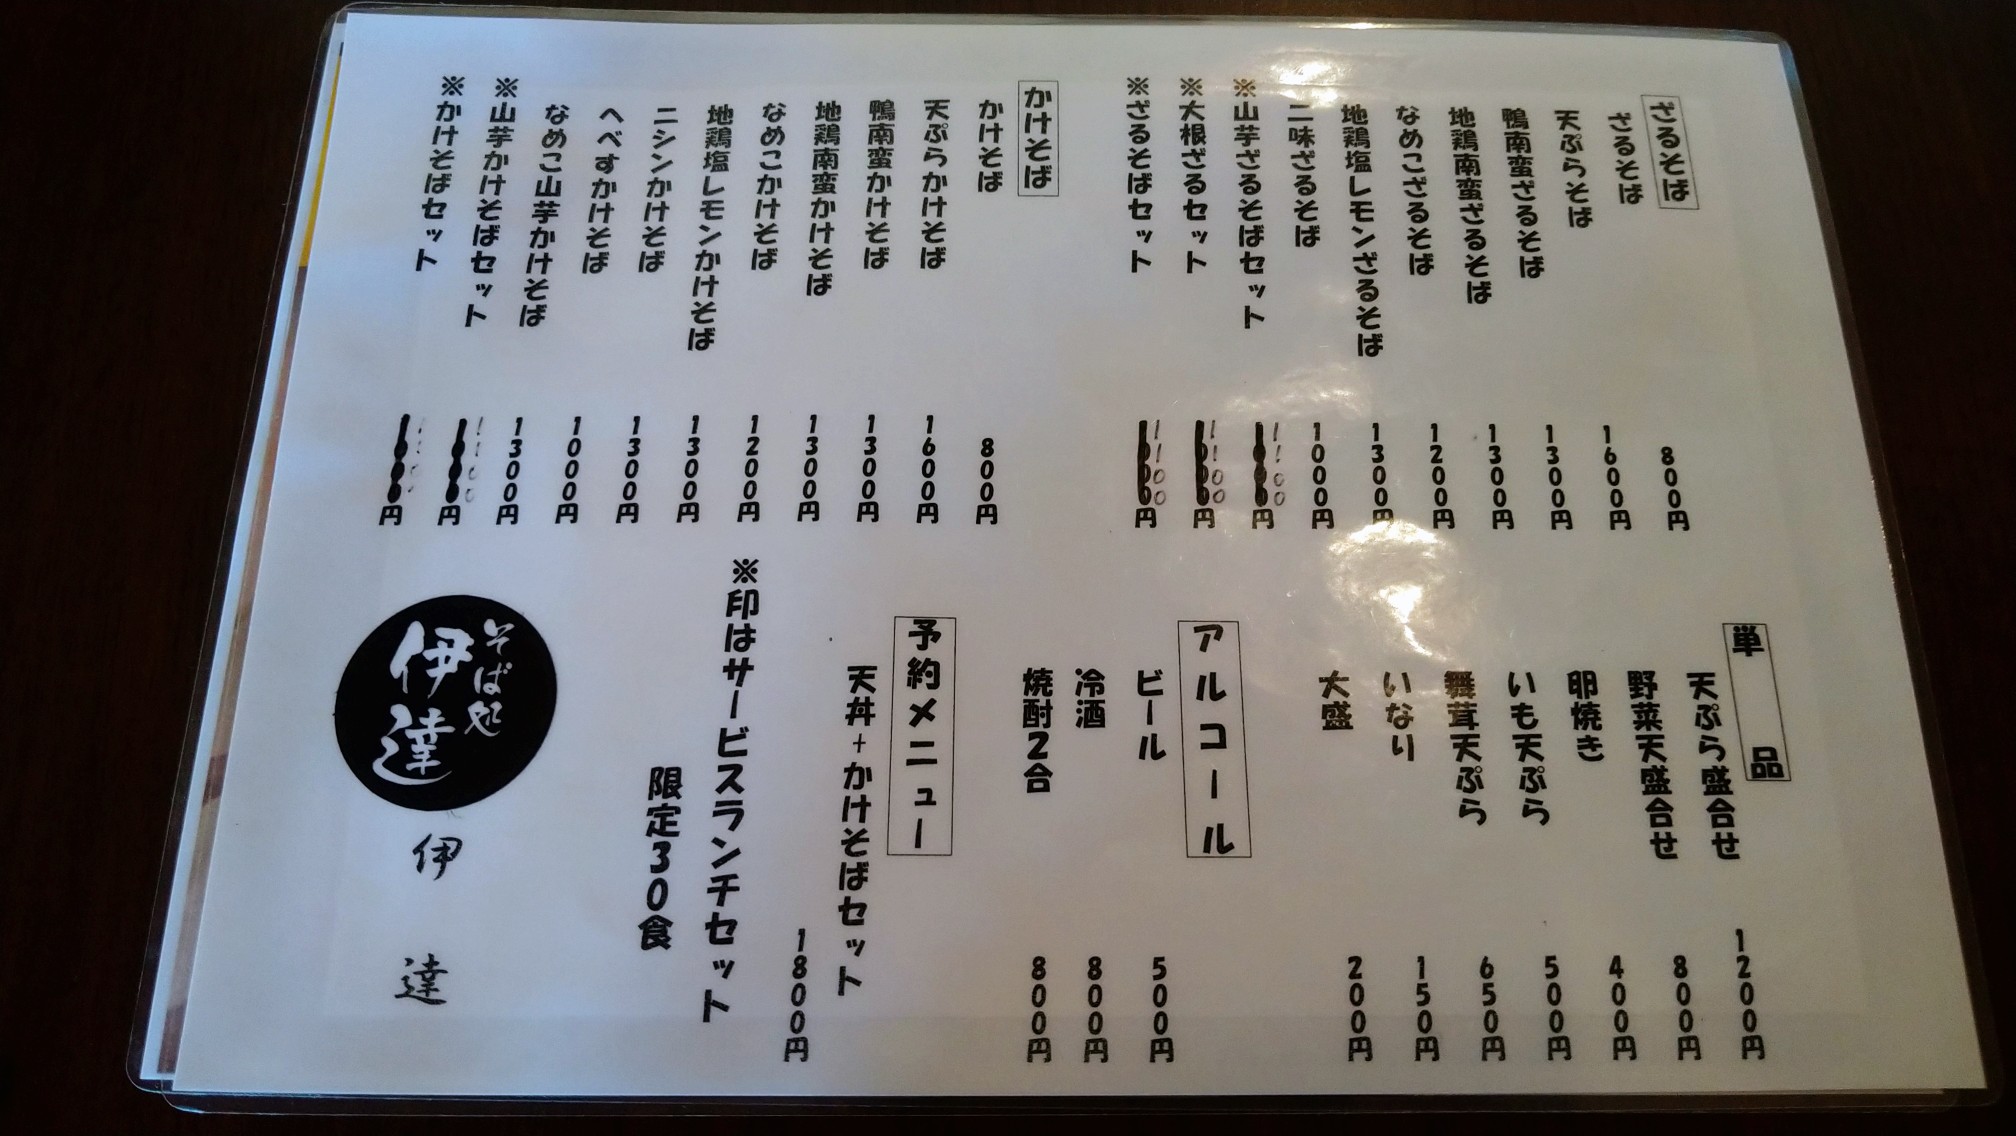 ざるそば
ざるそば 800円
天ぷらそば 1600円
鴨南蛮ざるそば 1300円
地鶏南蛮ざるそば 1300円
なめこざるそば 1200円
地鶏塩レモンざるそば 1300円
二味ざるそば 1000円
※山芋ざるそばセット 1100円
※大根ざるセット 1100円
※ざるそばセット 1100円
かけそば
かけそば 800円
天ぷらかけそば 1600円
鴨南蛮かけそば 1300円
地鶏南蛮かけそば 1300円
なめこかけそば 1200円
地鶏塩レモンかけそば 1300円
ニシンかけそば 1300円
へべすかけそば 1000円
なめこ山芋かけそば 1300円
※山芋かけそばセット 1100円
※かけそばセット 1100円
単品
天ぷら盛合せ 1200円
野菜天盛合せ 800円
卵焼き 400円
いも天ぷら 500円
舞茸天ぷら 650円
いなり 150円
大盛 200円
アルコール
ビール 500円
冷酒 800円
焼酎2合 800円
予約メニュー
天丼+かけそばセット
1800円
※印はサービスランチセット
限定30食
そば処
伊達
伊達